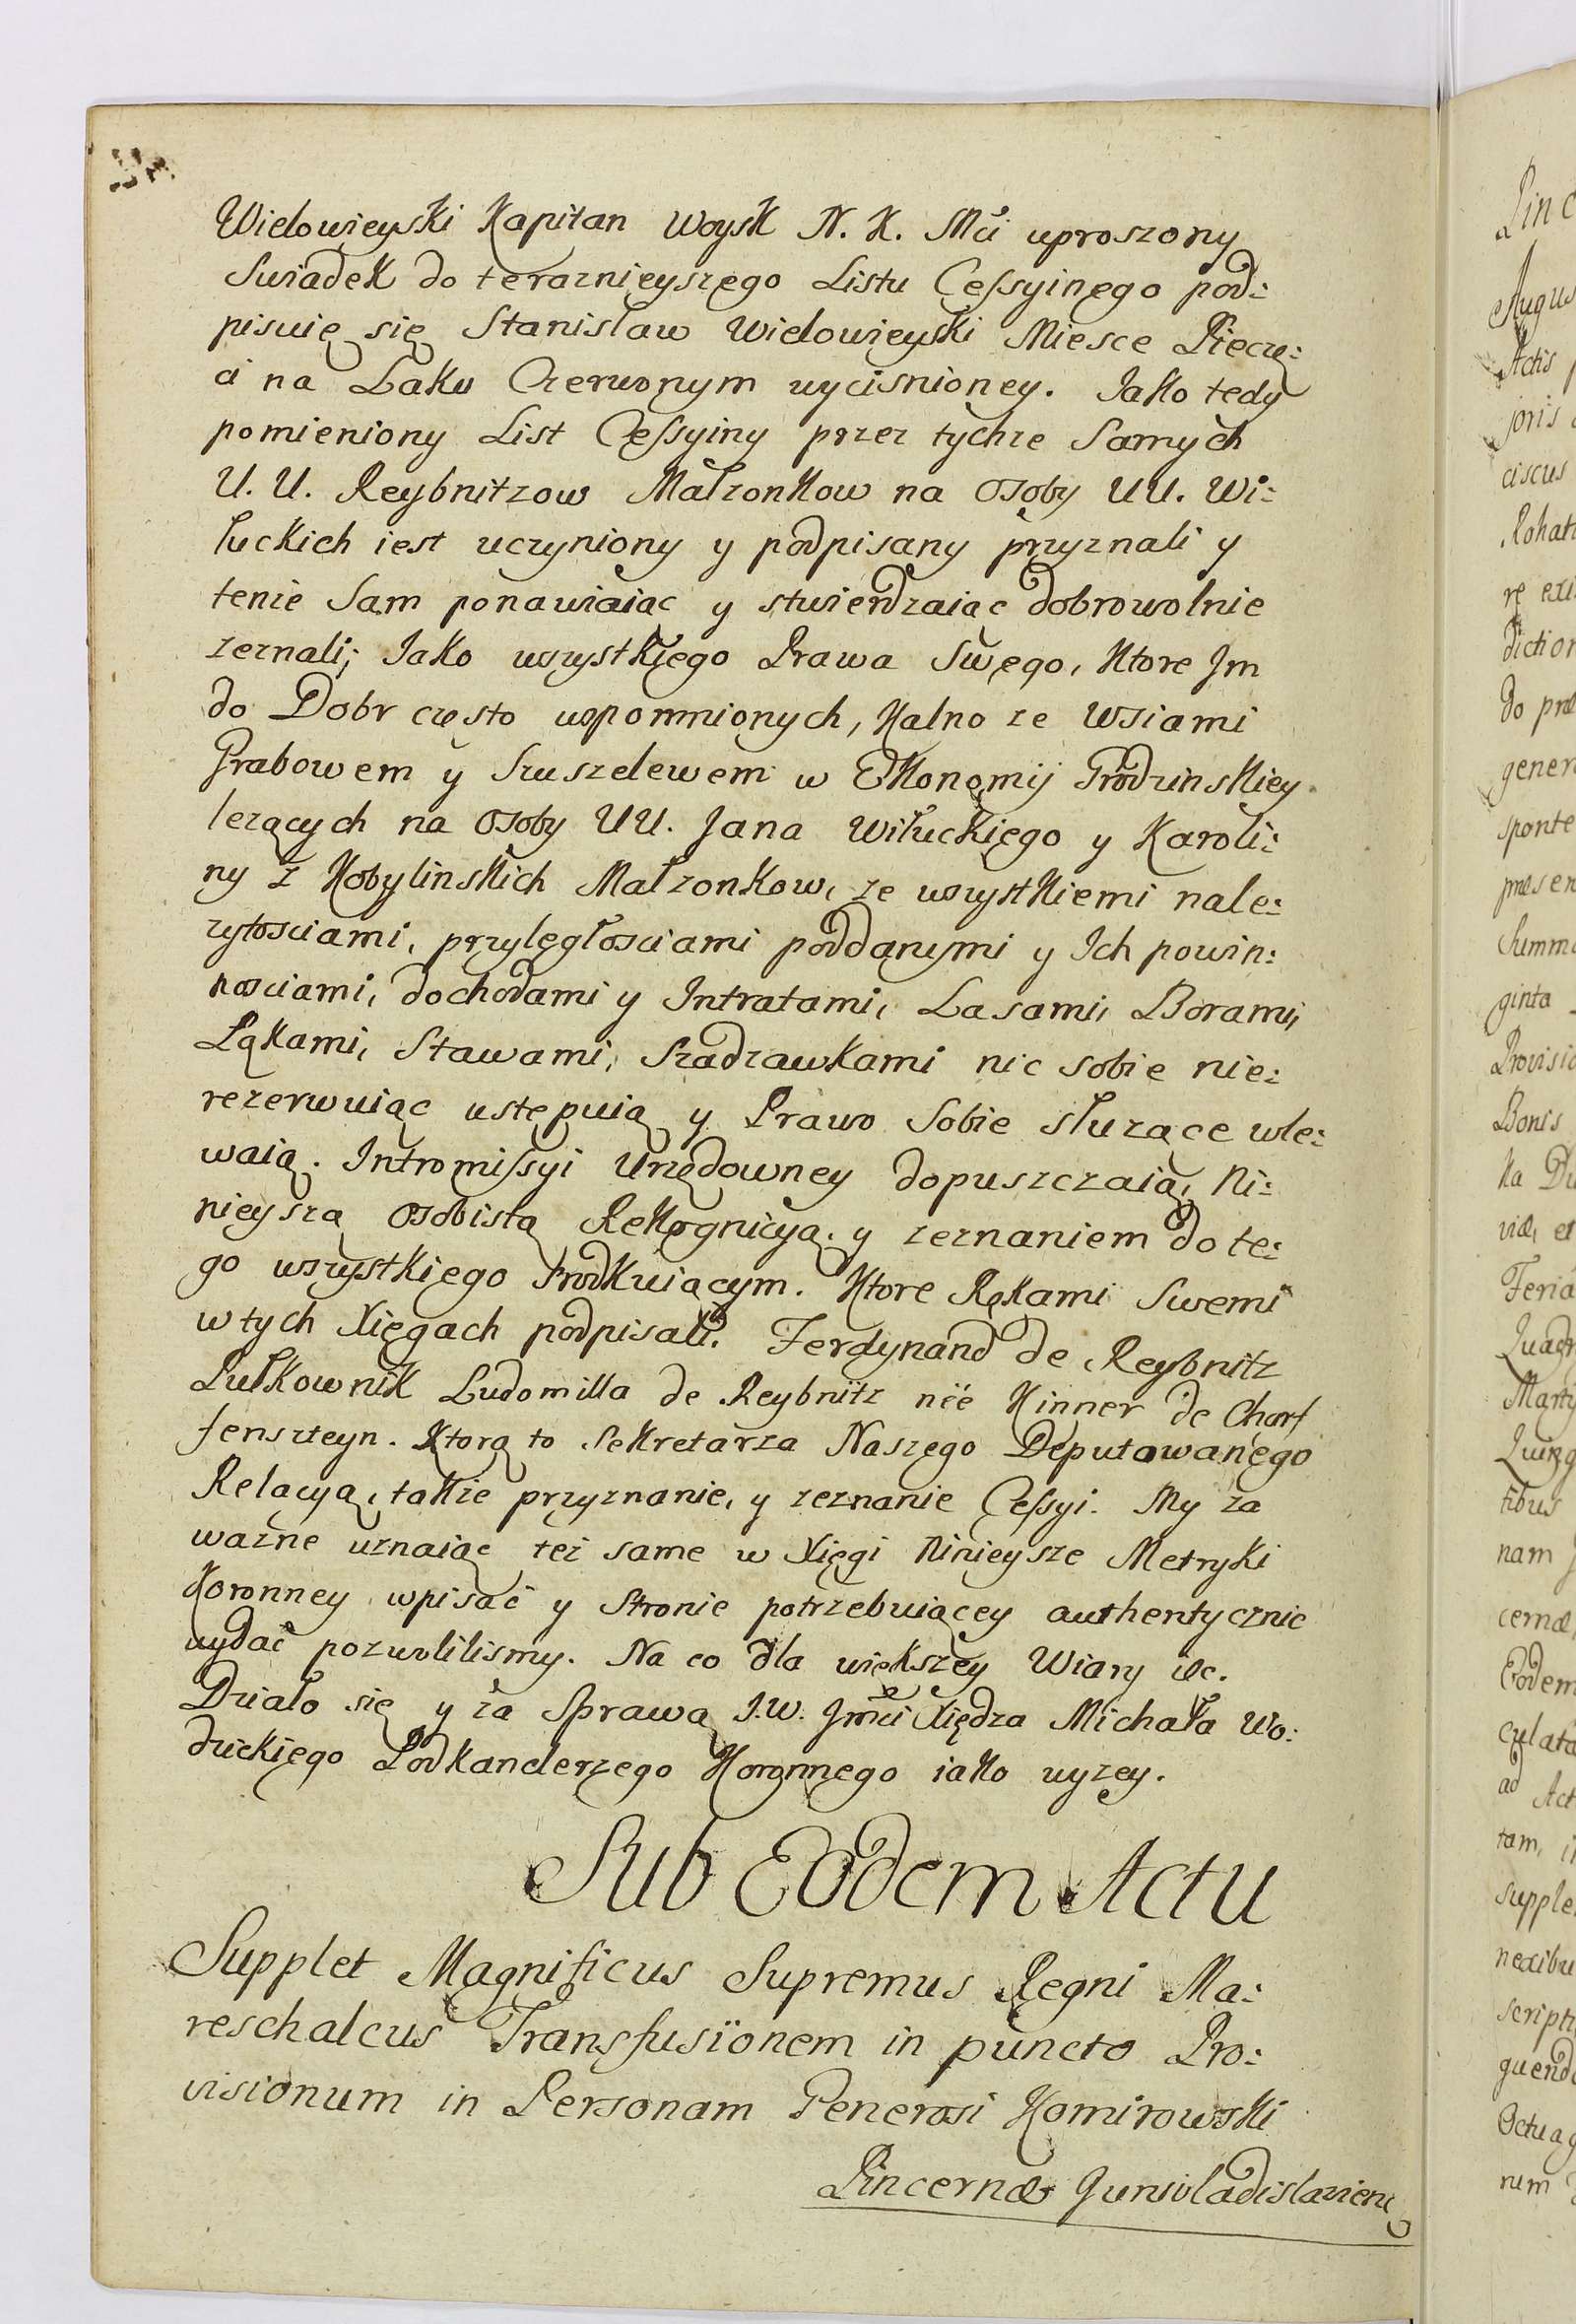 Wielowieyski Kapitan Woysk N. K. Mci uproszony
Swiadek do teraznieyszego Listu Cessyinego pod:
pisuię się Stanisław Wielowieyski Miesce Pieczę:
ci na Laku Czerwonym wycisnioney. Jako tedy
pomieniony List Cessyiny przez tychze Samych
U. U. Reybnitzow Małzonkow na Osoby UU. Wi:
łuckich iest uczyniony y podpisany przyznali y
tenze Sam ponawiaiąc y stwierdzaiąc dobrowolnie
zeznali; Jako wszystkiego Prawa Swego, Ktore Im
do Dobr często wspomnionych, Kalno ze Wsiami
Grabowem y Szuszelewem w Ekonomij Grodzinskiey
lezących na Osoby UU. Jana Wiłuckiego y Karoli:
ny z Kobylinskich Małzonkow, ze wszystkiemi nale:
zytosciami, przyległosciami poddanymi y Ich powin:
nosciami, dochodami y Intratami, Lasami, Borami,
Łąkami, Stawami, Sadzawkami nic sobie nie:
rezerwuiąc ustępuią y Prawo Sobie słuzące wle:
waią. Intromissyi Urzędowney dopuszczaią, Ni:
nieyszą Osobistą Rekognicyą y zeznaniem do te:
go wszystkiego srodkuiącym. Ktore Rękami Swemi
w tych Xięgach podpisali. Ferdynand de Reybnitz
Pułkownik Ludomilla de Reybnitz nee Kinner de Charf
fenszteyn. Ktorą to Sekretarza Naszego Deputowanego
Relacyą, takze przyznanie, y zeznanie Cessyi. My za
wazne uznaiąc też same w Xięgi Ninieysze Metryki
Koronney wpisać y Stronie potrzebuiącey authentycznie
wydać pozwolilismy. Na co dla większey Wiary &c.
Działo się y za Sprawą J.W. Jmci Xiędza Michała Wo:
dzickiego Podkanclerzego Koronnego iako wyzey.
Sub Eodem Actu
Supplet Magnificus Supremus Regni Ma:
reschalcus Transfusionem in puncto Pro:
visionum in Personam Generosi Komirowski
Pincernæ Junivladislavien
Pinc
Augus
Actis
joris
ciscus
Rohat
re
diction
do præ
gener
sponte
præsen
Summa
ginta
Provisio
Bonis
ka Du
viæ, et
Feria
Quadr
Marty
Quing
tibus
nam
cernæ,
Eodem
culata
ad Act
tam, i
supple
nexibu
script
quend
Octuag
num